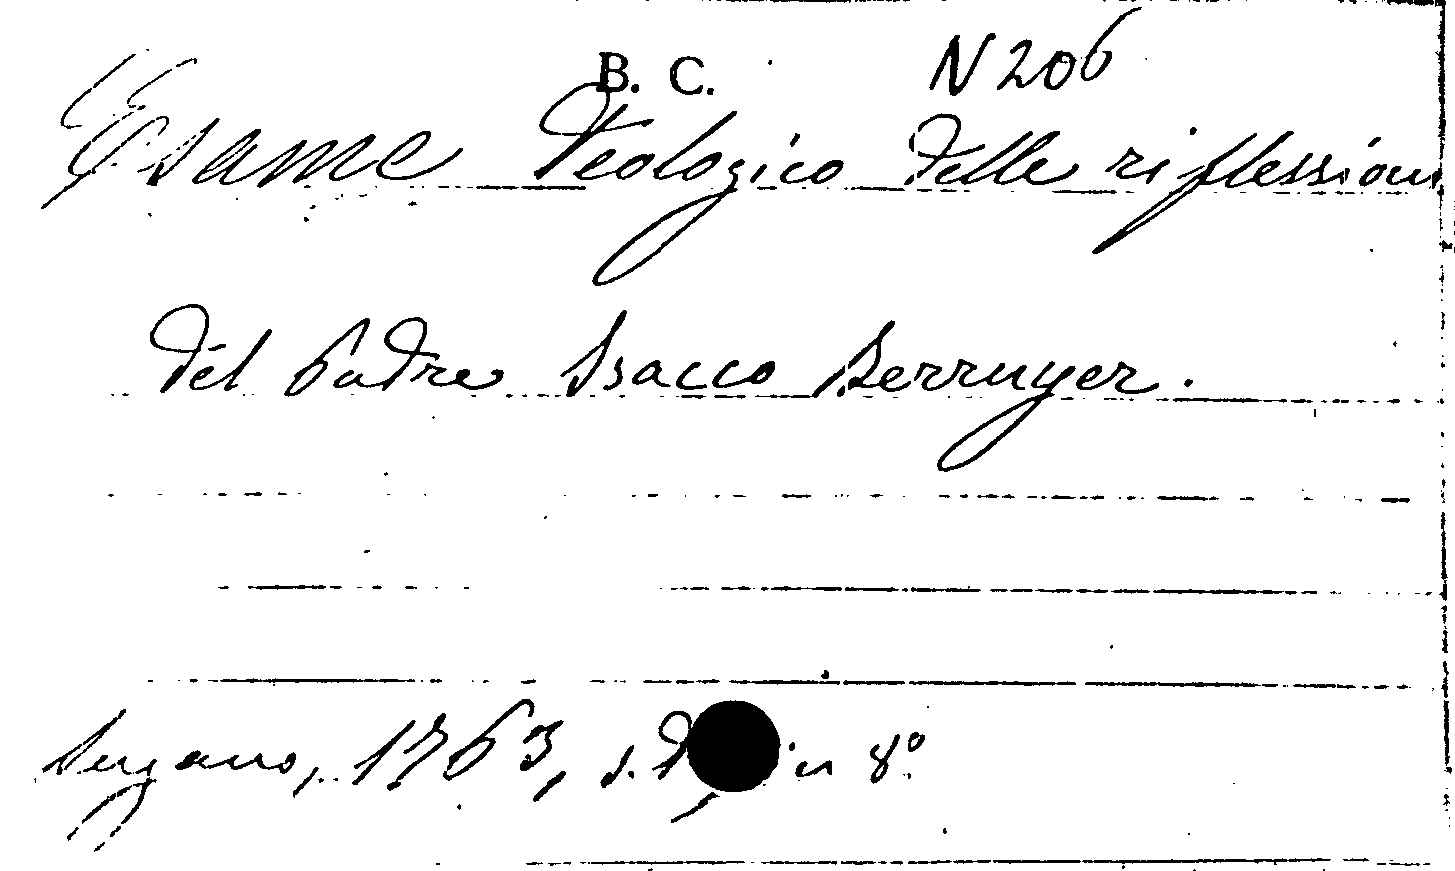 B. C. N 206
Esame Teologico delle riflessioni
del Padre Isacco Berruyer.
Lugano, 1763, s. in 8º